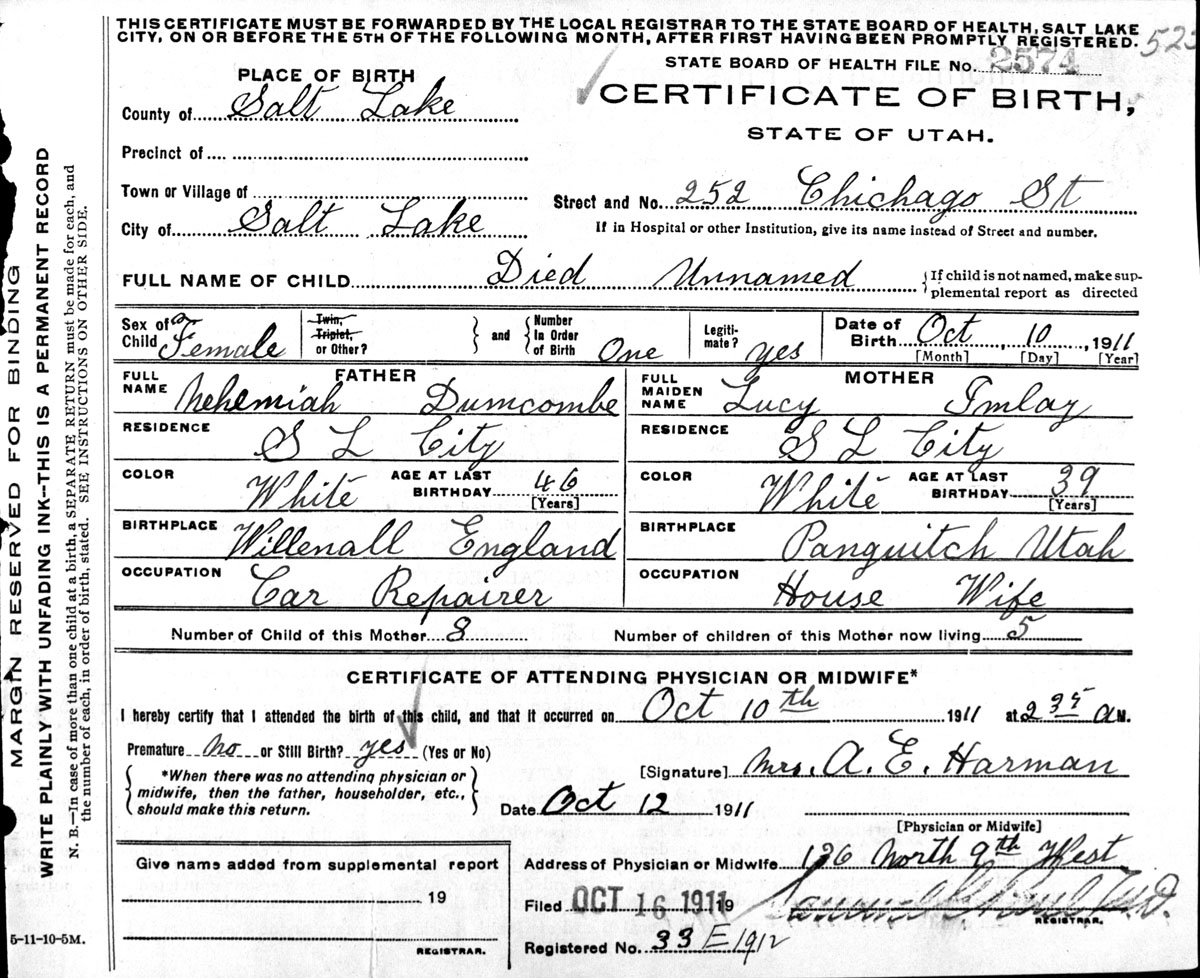 THIS CERTIFICATE MUST BE FORWARDED BY THE LOCAL REGISTRAR TO THE STATE BOARD OF HEALTH, SALT LAKE
CITY, ON OR BEFORE THE 5TH OF THE FOLLOWING MONTH, AFTER FIRST HAVING BEEN PROMPTLY REGISTERED.
STATE BOARD OF HEALTH FILE No. 2574
PLACE OF BIRTH
CERTIFICATE OF BIRTH,
STATE OF UTAH.
County of Salt Lake
Precinct of
Town or Village of
Street and No. 252 Chichago St
City of Salt Lake
If in Hospital or other Institution, give its name instead of Street and number.
FULL NAME OF CHILD Died Unnamed
If child is not named, make sup-
plemental report as directed
Sex of Child Female
Twin, Triplet, or Other?
and
Number In Order of Birth One
Legiti-mate? yes
Date of Birth Oct 10, 1911
[Month] [Day] [Year]
FATHER
FULL NAME Nehemiah Dumcombe
MOTHER
FULL MAIDEN NAME Lucy Imlay
RESIDENCE S L City
RESIDENCE S L City
COLOR White AGE AT LAST BIRTHDAY 46 [Years]
COLOR White AGE AT LAST BIRTHDAY 39 [Years]
BIRTHPLACE Willenall England
BIRTHPLACE Panguitch Utah
OCCUPATION Car Repairer
OCCUPATION House Wife
Number of Child of this Mother 8 Number of children of this Mother now living 5
CERTIFICATE OF ATTENDING PHYSICIAN OR MIDWIFE*
I hereby certify that I attended the birth of this child, and that it occurred on Oct 10th 1911 at 2 35 A M.
Premature no or Still Birth? yes (Yes or No)
*When there was no attending physician or
midwife, then the father, householder, etc.,
should make this return.
[Signature] Mrs. A. E. Harman
Date Oct 12 1911
[Physician or Midwife]
Give name added from supplemental report
19
REGISTRAR.
Address of Physician or Midwife 136 North 9th West
Filed OCT 16 1911 19
REGISTRAR.
Registered No. 33 E 1912
MARGIN RESERVED FOR BINDING
WRITE PLAINLY WITH UNFADING INK—THIS IS A PERMANENT RECORD
N. B.—In case of more than one child at a birth, a SEPARATE RETURN must be made for each, and
the number of each, in order of birth, stated. SEE INSTRUCTIONS ON OTHER SIDE.
5-11-10-5M.